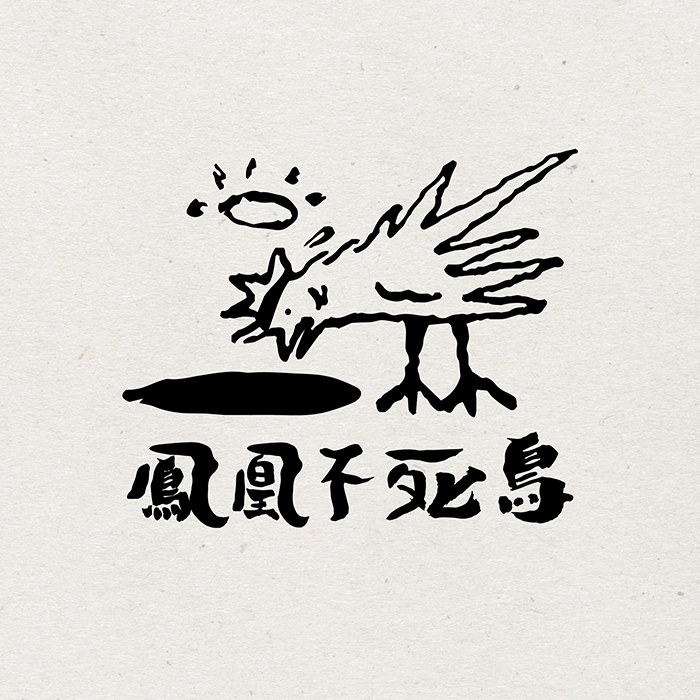 鳳凰不死鳥